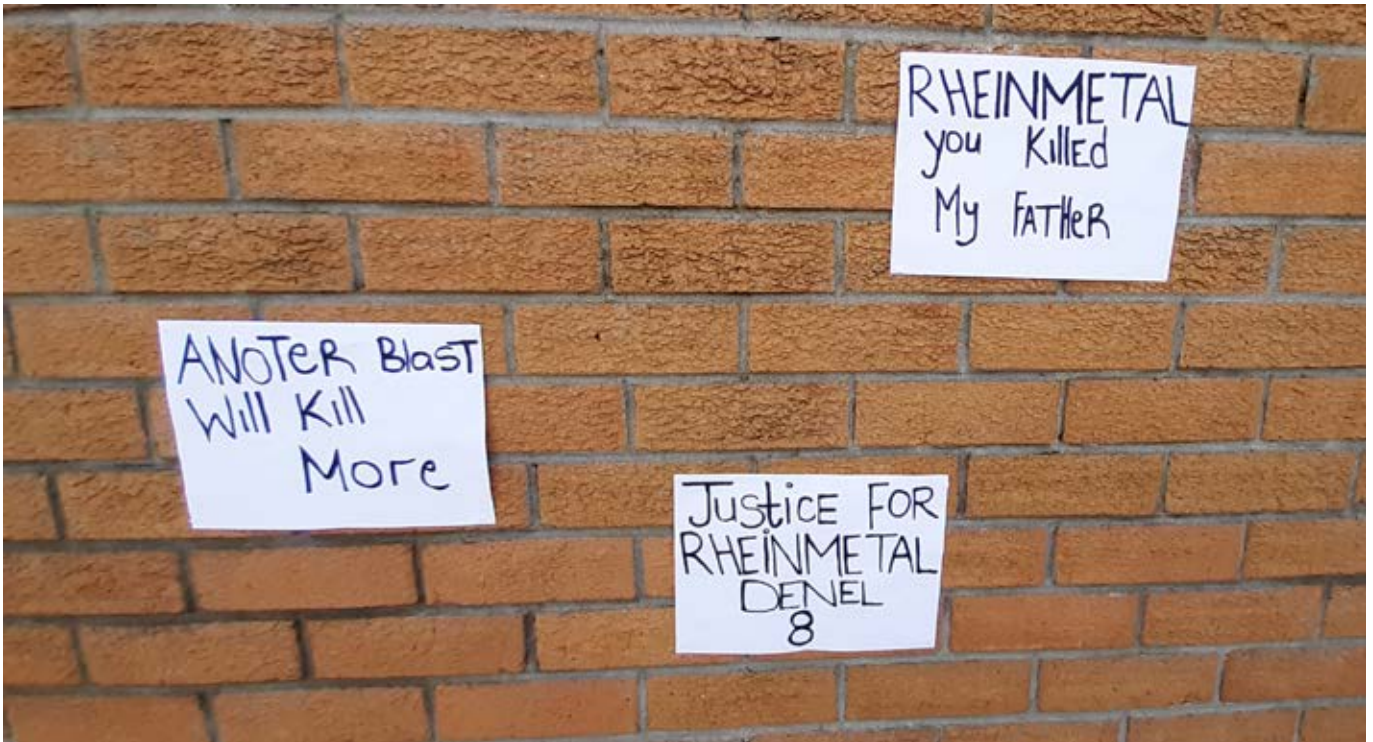 RHEINMETAL
you Killed
My FATHeR
ANOTeR BlasT
Will Kill
More
JustiCE FOR
RHEiNMETAL
DENEL
8